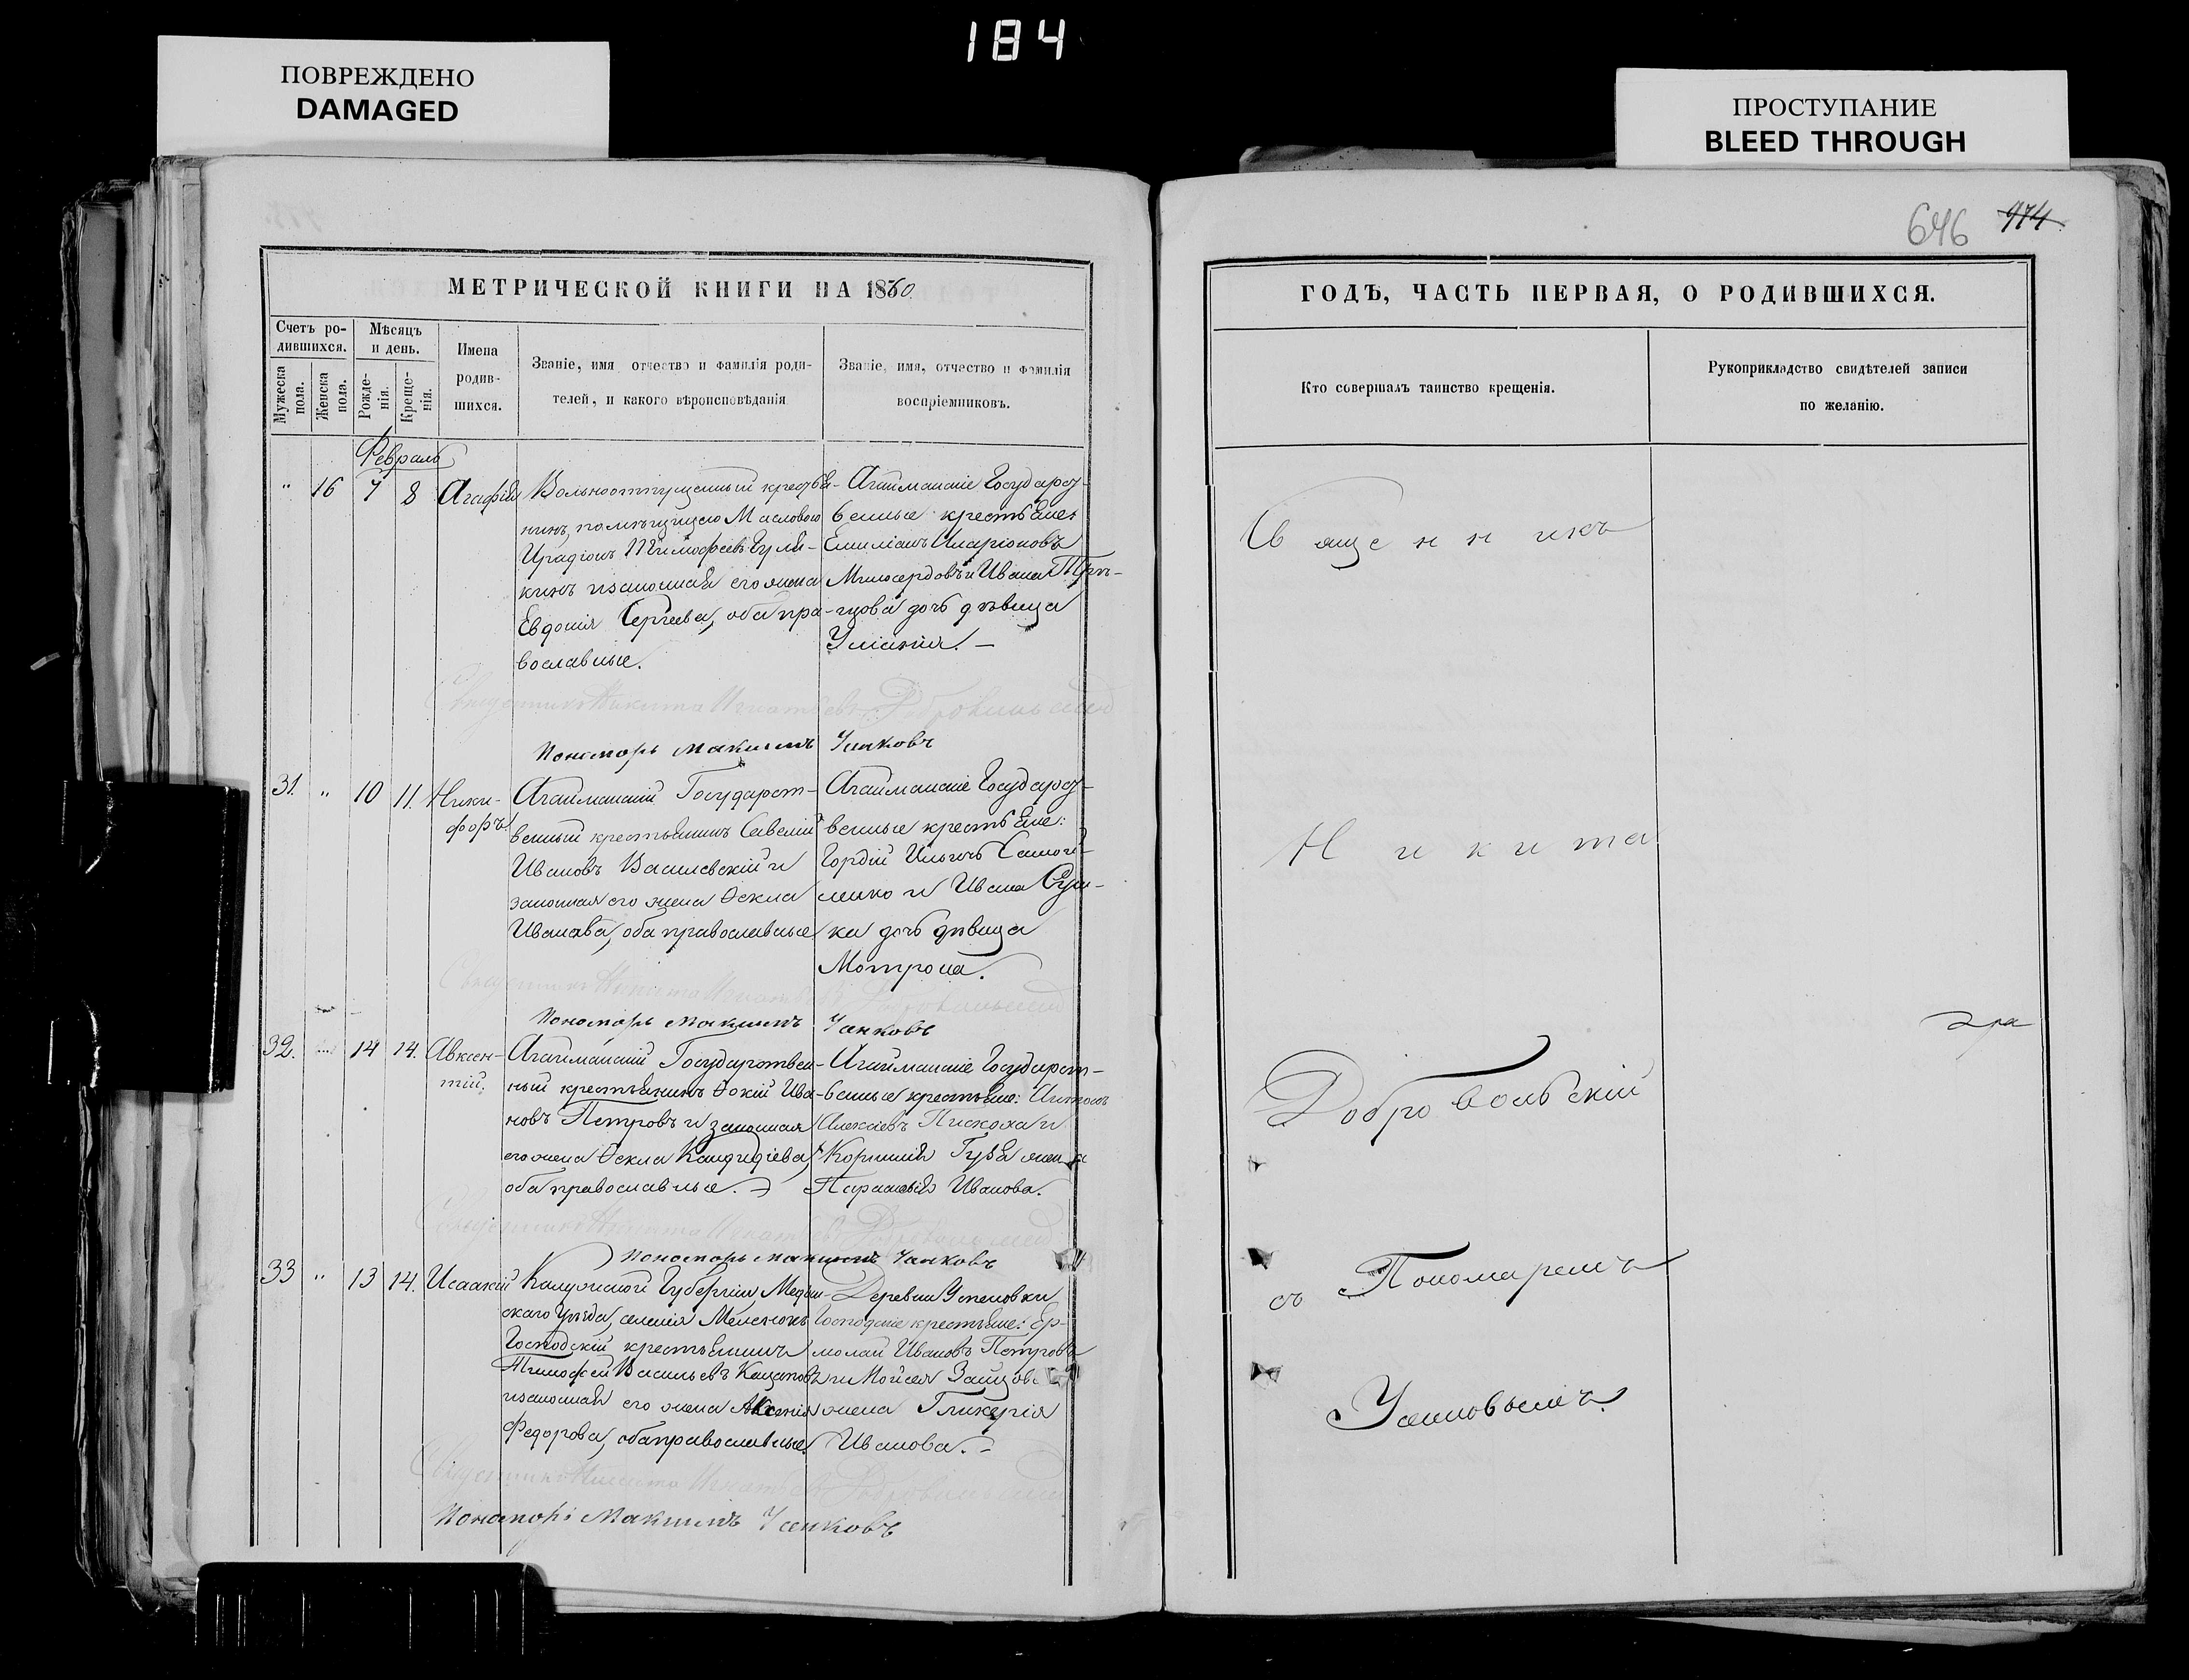 184
ПОВРЕЖДЕНО
DAMAGED
ПРОСТУПАНИЕ
BLEED THROUGH
МЕТРИЧЕСКОЙ КНИГИ НА 1860.
Счетъ ро-
дившихся.
Мужеска
пола.
Женска
пола.
Мѣсяцъ
и день.
Рожде-
нія.
Креще-
нія.
Имена
родив-
шихся.
Званіе, имя отчество и фамилія роди-
телей, и какого вѣроисповѣданія
Званіе, имя, отчество и фамилія
воспріемниковъ.
Февраль
" 16 7 8 Агафія
Вольноотпущенный крестья-
нинъ помѣщицею Масловою
Иродіонъ Тимофеевъ
и законная его жена
Евдокія Сергеева, оба пра-
вославные.
Агайманскіе Государст-
венные крестьяне:
Емиліанъ Иларіоновъ
Милосердовъ и Ивана
дочь дѣвица
Уліанія. —
Пономарь Максимъ
31. " 10 11. Ники-
форъ
Агайманскій Государст-
венный крестьянинъ Савелій
Ивановъ Василевскій и
законная его жена Ѳекла
Иванова, оба православные
Агайманскіе Государст-
венные крестьяне:
Гордій Ильичъ Самой-
ленко и Ивана
ка дочь дѣвица
Мотрона.
Пономарь Максимъ
32. " 14 14. Авксен-
тій.
Агайманскій Государствен-
ный крестьянинъ Ѳокій Ива-
новъ Петровъ и законная
его жена Ѳекла Кандидіева,
оба православные.
Агайманскіе Государст-
венные крестьяне: Антонъ
Алексіевъ и
Корнилія жена
Параскевія Иванова.
Пономарь Максимъ
33 " 13 14. Исаакій
Калужской Губерніи Медын-
скаго уѣзда, селенія
Господскій крестьянинъ
Тимофей Васильевъ
и законная его жена Аксенія
Федорова, оба православные.
Деревни Успеновки
Господскіе крестьяне: Ер-
молай Ивановъ Петровъ
и Мойсея Зайцова
жена Гликерія
Иванова. —
Пономарь Максимъ
646 974
ГОДѢ, ЧАСТЬ ПЕРВАЯ, О РОДИВШИХСЯ.
Кто совершалъ таинство крещенія.
Рукоприкладство свидѣтелей записи
по желанію.
Священникъ
Никита
Добровольскій
съ Пономаремъ